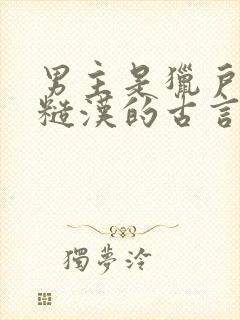 男主是獵戶
糙漢的古言
獨夢泠